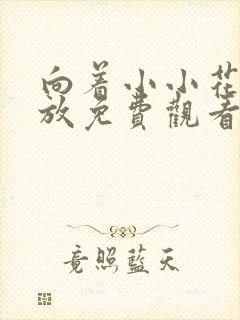 向着小小花
放免费觀看
竟照藍天